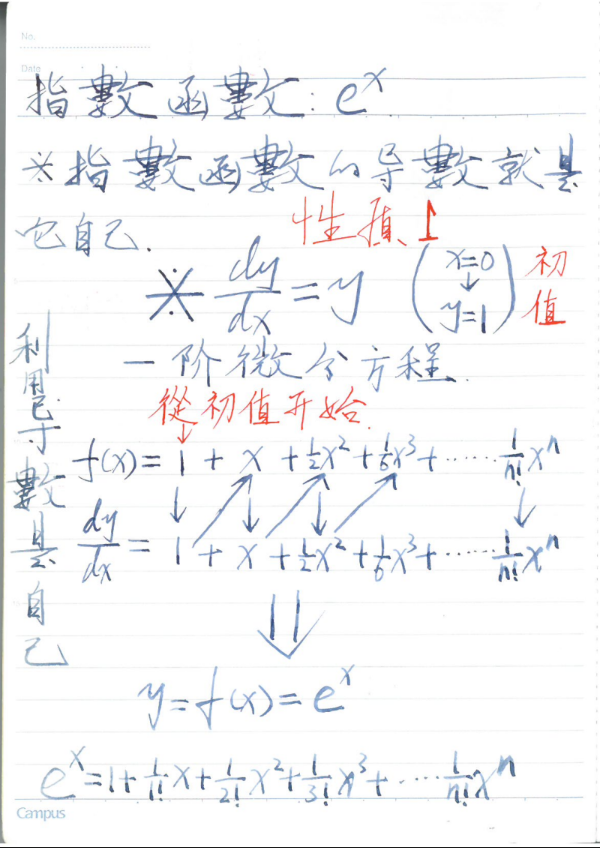 No.
Date
指數函數: e^x
※指數函數的导數就是
它自己.
性質1
※ dy/dx = y (x=0 ↓ y=1) 初值
一阶微分方程.
從初值开始.
↓
f(x) = 1 + x + 1/2 x^2 + 1/6 x^3 + ...... 1/n! x^n
dy/dx = 1 + x + 1/2 x^2 + 1/6 x^3 + ...... 1/n! x^n
利用导數是自己
⇓
y = f(x) = e^x
e^x = 1 + 1/1! x + 1/2! x^2 + 1/3! x^3 + ..... 1/n! x^n
Campus